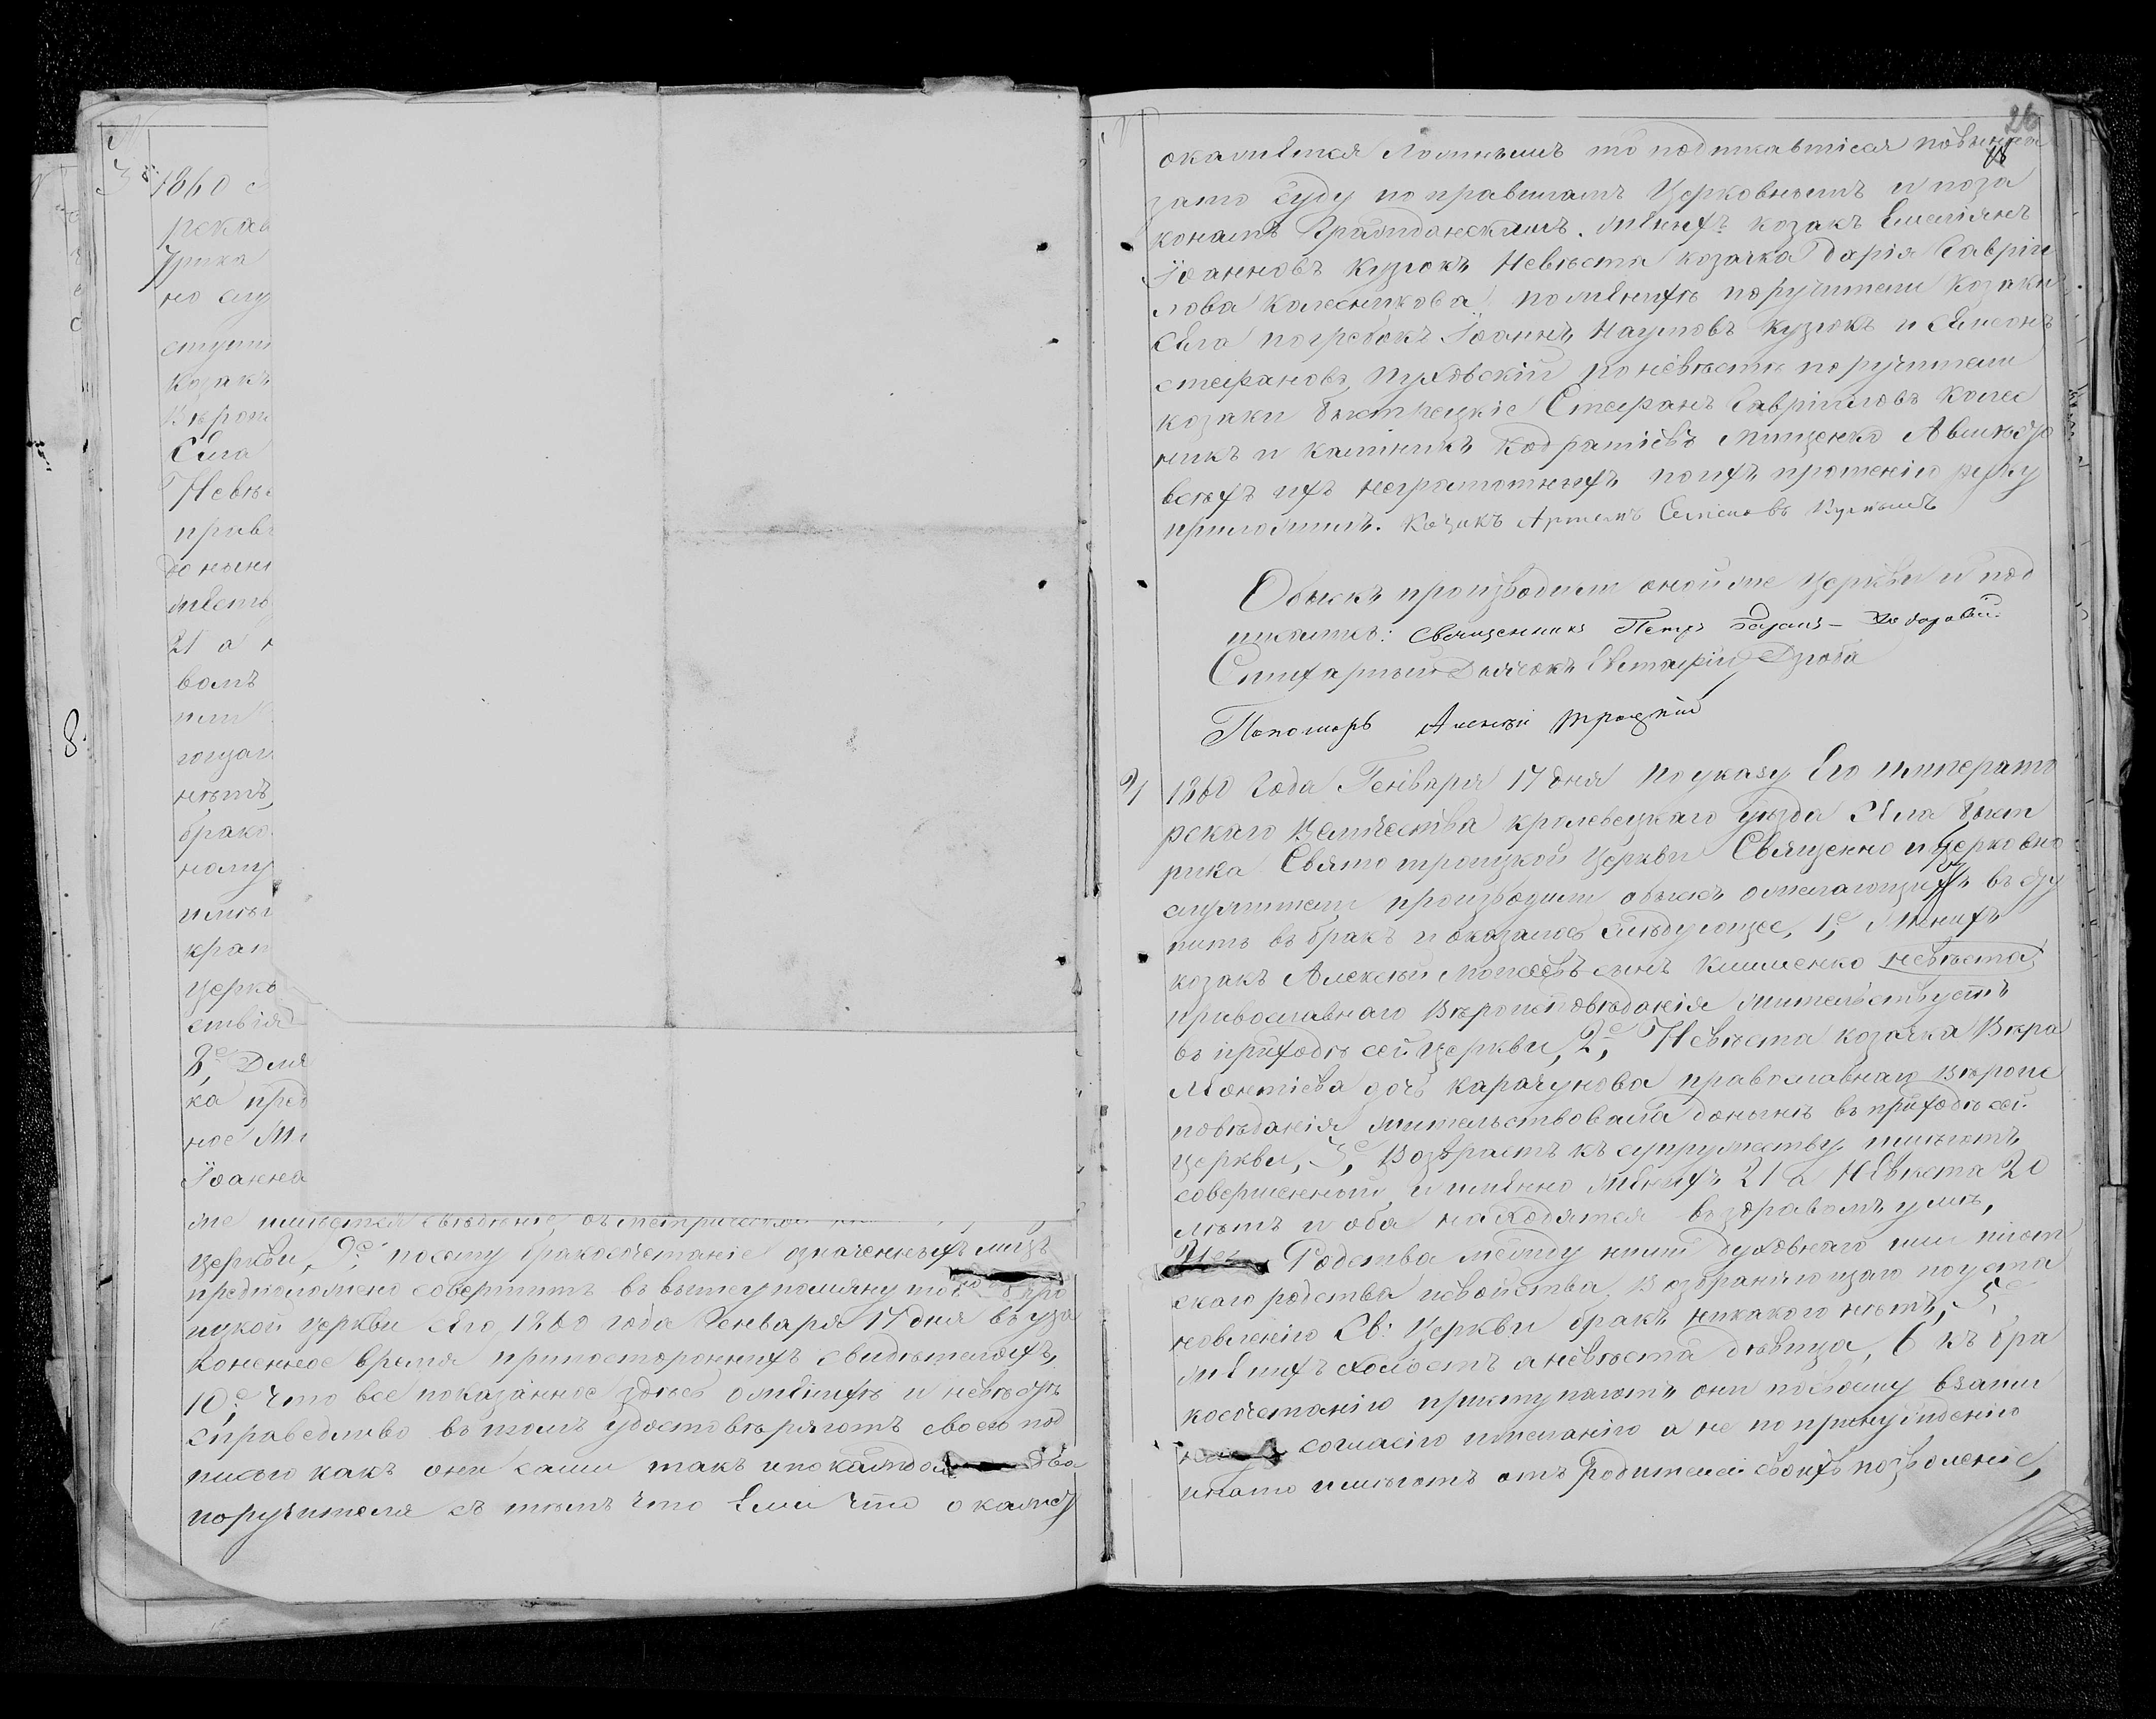 8
1860
рекаго
Урика
но слу
ступи
козакъ
Вѣроис
Села
Невѣс
прав
до нын
жител
21 а н
вомъ
или
ющаг
нѣтъ,
брако
ному
имѣю
крат
церкв
ствія
8е, Для
ка пред
ное М
Іоанна
же имѣется свѣдѣніе, въ метрической
церкви, 9е, посему бракосочетаніе означенныхъ лицъ
предположено совершить въ вышеупомянутой Тро
ицкой церкви сего 1860 года Генваря 17 дня въ уза
коненное время при постороннихъ свидѣтеляхъ,
10е, что все показанное здѣсь о женихѣ и невѣстѣ
справедливо въ томъ удостовѣряютъ своею под
писью какъ они сами такъ и по каждо два
поручителя съ тѣмъ что Ели что окажет
26
окажется Ложнымъ то подписавшіеся повинны
зато суду по правиламъ Церковнымъ и поза
конамъ Гражданскимъ. Женихъ козакъ Емеліянъ
Іоанновъ Кузюкъ Невѣста козачка Дарія Гавріи
лова Колесникова, по женихѣ поручители Козаки
Села погребокъ Іоаннъ Наумовъ Кузюкъ и Симеонъ
Стефановъ Туховскій по невѣстѣ поручители
козаки быстрецкіе Стефанъ Гавріиловъ Колес
никъ и Калиникъ Кодратіевъ Мищенко А вмѣсто
всѣхъ ихъ неграмотныхъ по ихъ прошенію руку
приложилъ. Козакъ Артемъ Семеновъ
Обыскъ производили оной же церкви и под
писались: Священникъ Петръ
Стихарный Дьячокъ Евстафій Дзюба
Пономарь Алексѣй Троцкій
2, 1860 Года Генваря 17 дня по указу Его Императо
рскаго Величества кролевецкаго уѣзда Села Быст
рика Свято троицкой Церкви Священно и церковно
служители производили обыскъ о желающихъ всту
пить въ бракъ и оказалось слѣдующее, 1е, Женихъ
козакъ Алексѣй Моисеевъ сынъ Клименко невѣста
православнаго Вѣроисповѣданія жительствуетъ
въ приходѣ сей церкви, 2е, Невѣста козачка Вѣра
Леонтіева дочь Карачунова православнаго вѣроис
повѣданія жительствовала донынѣ въ приходѣ сей
церкви, 3е, Возрастъ къ супружеству имѣютъ
совершенный, и имѣнно женихъ 21 а Невѣста 20
лѣтъ и оба находятся въ здравомъ умѣ,
Родства между ними духовнаго или плот
скаго родства и свойства, Возбраняющаго поуста
новленію Св: Церкви бракъ никакого нѣтъ, 5е
женихъ холостъ а невѣста дѣвица, 6 къ бра
косочетанію приступаютъ они по своему взаим
согласію и желанію а не по принужденію
на то имѣютъ отъ родителей своихъ позволеніе,